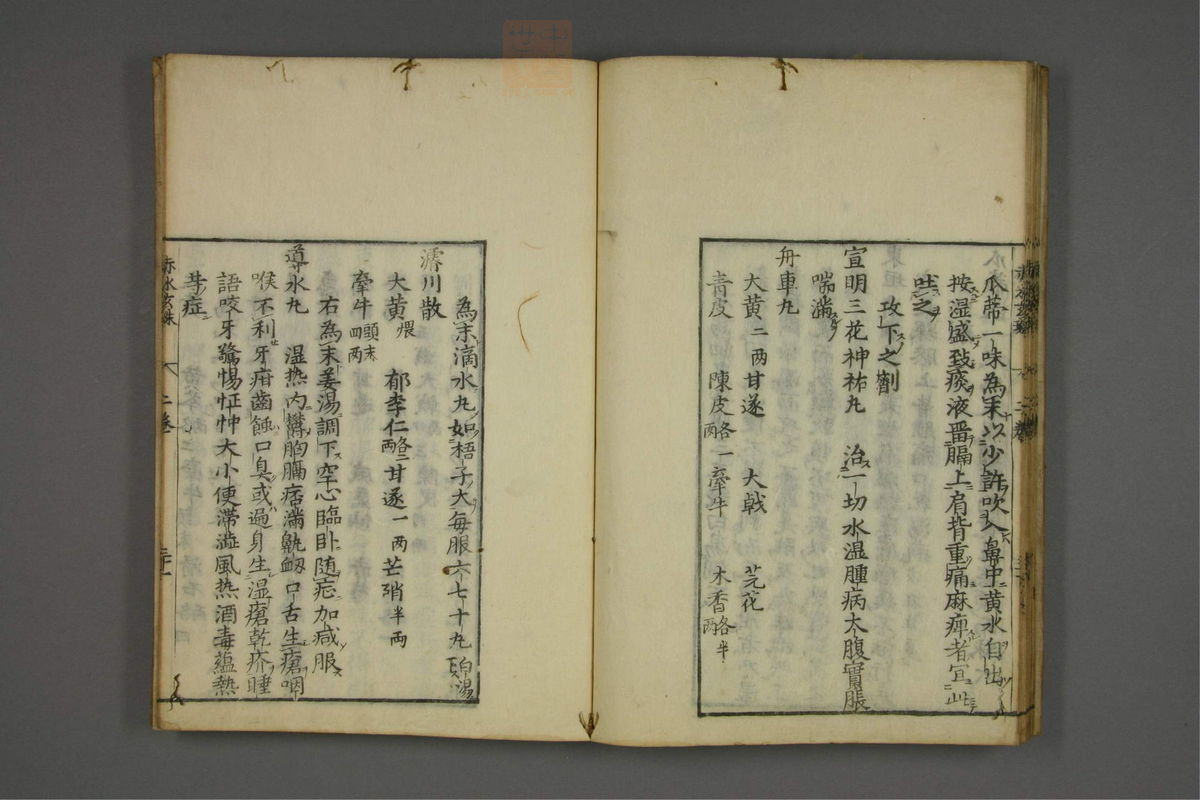 瓜蔕一味為末以少許吹入鼻中黄水自出
按湿盛致痰液畜膈上肩背重痛麻痺者宜此
吐之
攻下之劑
宣明三花神祐丸 治一切水湿腫病大腹實脹
喘滿
舟車丸
大黄二两 甘遂 大戟 芫花
青皮 陳皮各一两 牽牛 木香各半两
為末滴水丸如梧子大每服六七十丸白湯
濬川散
大黄煨 郁李仁各二两 甘遂一两 芒硝半两
牽牛頭末四两
右為末姜湯調下空心臨卧随症加减服
導水丸 湿热内欝胸膈痞滿鼽衂口舌生瘡咽
喉不利牙疳齒蝕口臭或遍身生湿瘡乾疥睡
語咬牙驚惕怔忡大小便滞澁風热酒毒藴熱
等症
赤水玄珠 二巻